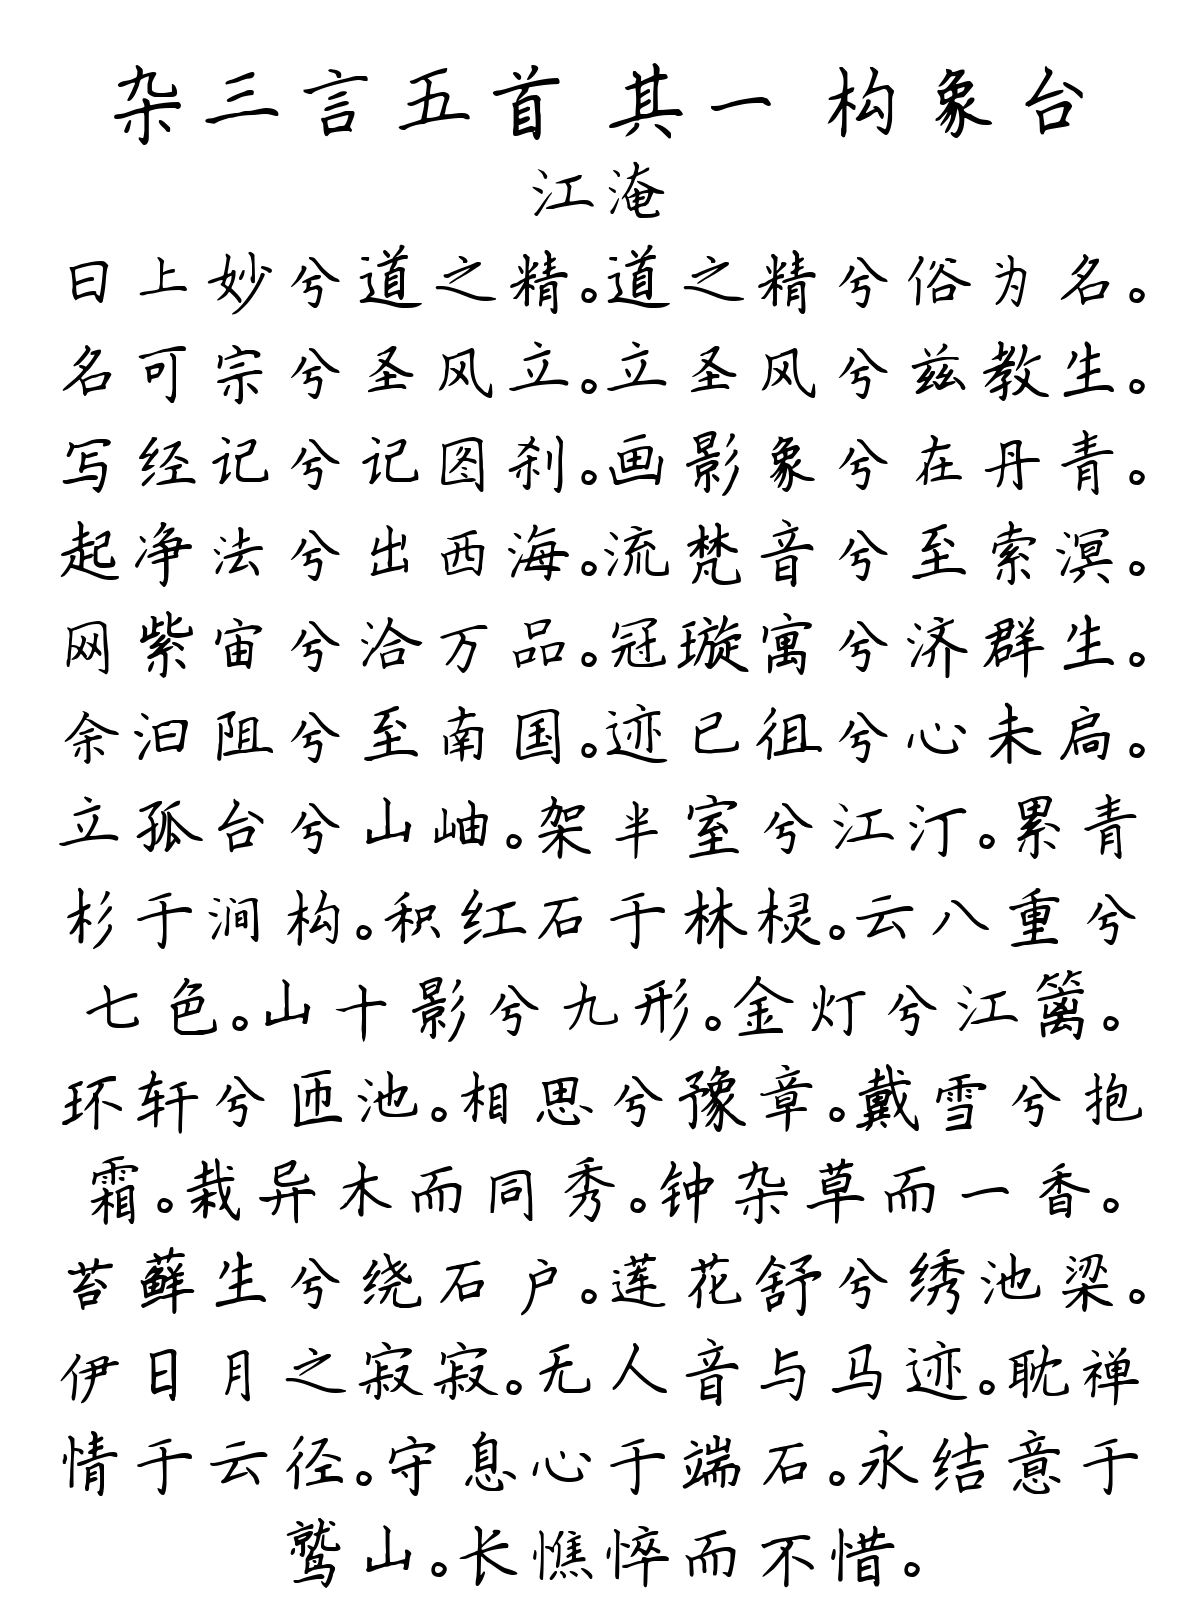 杂三言五首 其一 构象台
江淹
曰上妙兮道之精。道之精兮俗为名。
名可宗兮圣风立。立圣风兮兹教生。
写经记兮记图刹。画影象兮在丹青。
起净法兮出西海。流梵音兮至索溟。
网紫宙兮洽万品。冠璇寓兮济群生。
余汩阻兮至南国。迹已徂兮心未扃。
立孤台兮山岫。架半室兮江汀。累青
杉于涧构。积红石于林棂。云八重兮
七色。山十影兮九形。金灯兮江篱。
环轩兮匝池。相思兮豫章。戴雪兮抱
霜。栽异木而同秀。钟杂草而一香。
苔藓生兮绕石户。莲花舒兮绣池梁。
伊日月之寂寂。无人音与马迹。耽禅
情于云径。守息心于端石。永结意于
鹫山。长憔悴而不惜。